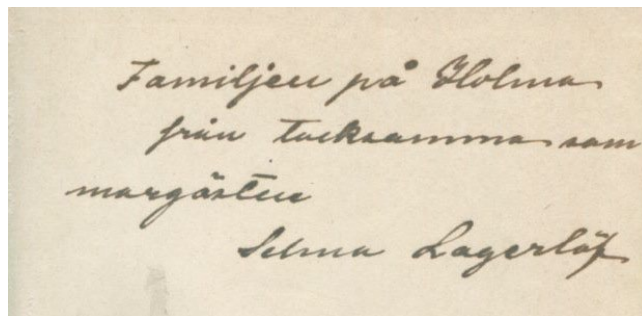 Familjen på Holma
från tacksamma som
margästen
Selma Lagerlöf